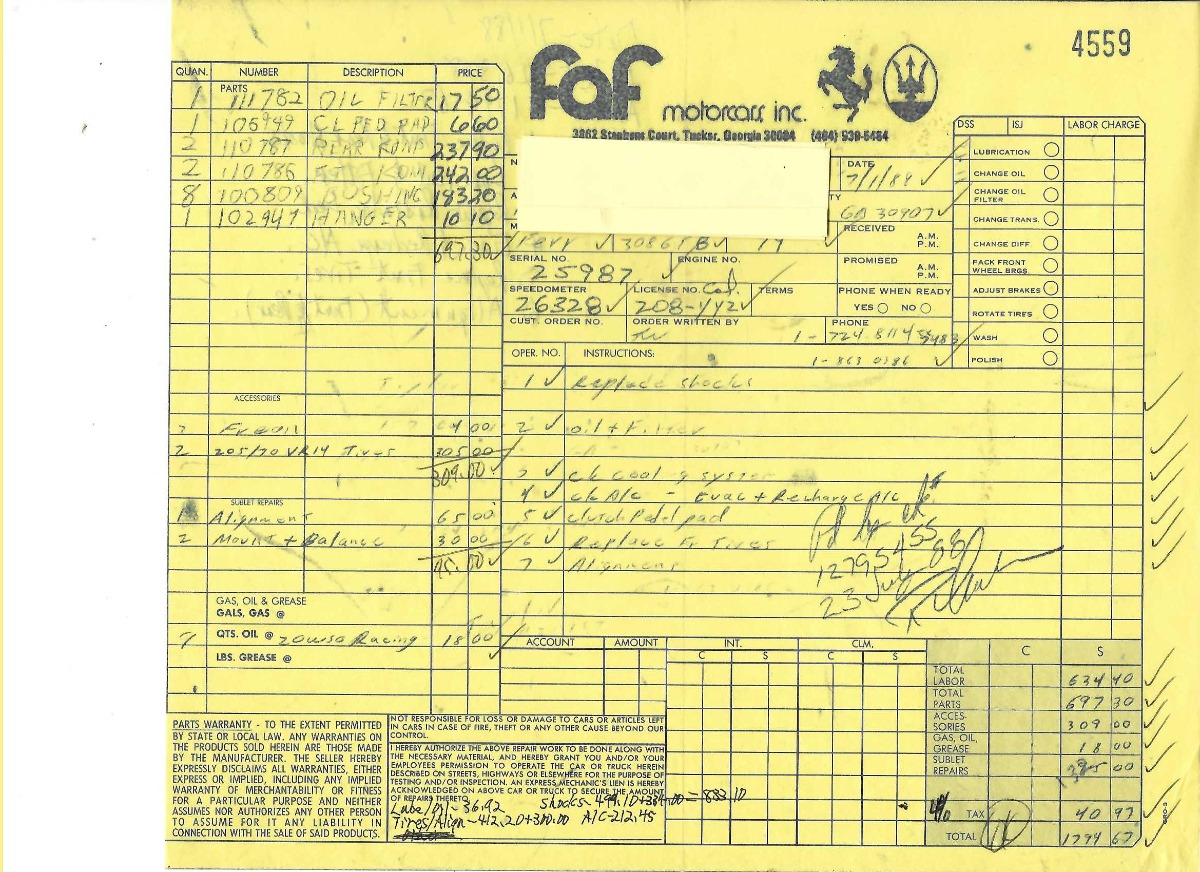 4559
faf motorcars inc.
3862 Stephens Court, Tucker, Georgia 30084 (404) 939-5464
QUAN. NUMBER DESCRIPTION PRICE
PARTS
1 111782 OIL FILTER 17 50
1 105949 CL PED PAD 6 60
2 110787 REAR KONI 237 90
2 110786 FT KONI 242.00
8 100809 BUSHING 183 20
1 102947 HANGER 10 10
697.30
ACCESSORIES
Freon 4 00
2 205/70 VR14 Tires 305 00
309.00
SUBLET REPAIRS
1 Alignment 65 00
2 Mount + Balance 30 00
95.00
GAS, OIL & GREASE
GALS. GAS @
QTS. OIL @ 20w50 Racing 18 00
LBS. GREASE @
DATE
7/1/88
GA 30907
RECEIVED A.M. P.M.
Ferr 308GTB 77
SERIAL NO. ENGINE NO. PROMISED A.M. P.M.
25987
SPEEDOMETER LICENSE NO. TERMS PHONE WHEN READY
26328 208-1/42 YES NO
CUST. ORDER NO. ORDER WRITTEN BY PHONE
1- 724 8114
1- 863 0386
DSS ISJ LABOR CHARGE
LUBRICATION
CHANGE OIL
CHANGE OIL FILTER
CHANGE TRANS.
CHANGE DIFF.
PACK FRONT WHEEL BRGS.
ADJUST BRAKES
ROTATE TIRES
WASH
POLISH
OPER. NO. INSTRUCTIONS:
1 Replace shocks
2 oil + Filter
3 ck cooling system
4 ck A/c - Evac + Recharge A/C
5 Clutch Pedel pad
6 Replace Fr Tires
7 Alignment
Pd by ck#
12795455
23 July 88
ACCOUNT AMOUNT INT. CLM.
C S C S
C S
TOTAL LABOR 634 40
TOTAL PARTS 697 30
ACCES- SORIES 309 00
GAS, OIL, GREASE 18 00
SUBLET REPAIRS 95 00
4% TAX 40 97
TOTAL 1794 67
PARTS WARRANTY - TO THE EXTENT PERMITTED
BY STATE OR LOCAL LAW. ANY WARRANTIES ON
THE PRODUCTS SOLD HEREIN ARE THOSE MADE
BY THE MANUFACTURER. THE SELLER HEREBY
EXPRESSLY DISCLAIMS ALL WARRANTIES, EITHER
EXPRESS OR IMPLIED, INCLUDING ANY IMPLIED
WARRANTY OF MERCHANTABILITY OR FITNESS
FOR A PARTICULAR PURPOSE AND NEITHER
ASSUMES NOR AUTHORIZES ANY OTHER PERSON
TO ASSUME FOR IT ANY LIABILITY IN
CONNECTION WITH THE SALE OF SAID PRODUCTS.
NOT RESPONSIBLE FOR LOSS OR DAMAGE TO CARS OR ARTICLES LEFT
IN CARS IN CASE OF FIRE, THEFT OR ANY OTHER CAUSE BEYOND OUR
CONTROL.
I HEREBY AUTHORIZE THE ABOVE REPAIR WORK TO BE DONE ALONG WITH
THE NECESSARY MATERIAL, AND HEREBY GRANT YOU AND/OR YOUR
EMPLOYEES PERMISSION TO OPERATE THE CAR OR TRUCK HEREIN
DESCRIBED ON STREETS, HIGHWAYS OR ELSEWHERE FOR THE PURPOSE OF
TESTING AND/OR INSPECTION. AN EXPRESS MECHANIC'S LIEN IS HEREBY
ACKNOWLEDGED ON ABOVE CAR OR TRUCK TO SECURE THE AMOUNT
OF REPAIRS THERETO
Lube/Oil- 56.92 Shocks- 499.10+384.00=883.10
Tires/Align-412.20+300.00 A/C-212.45